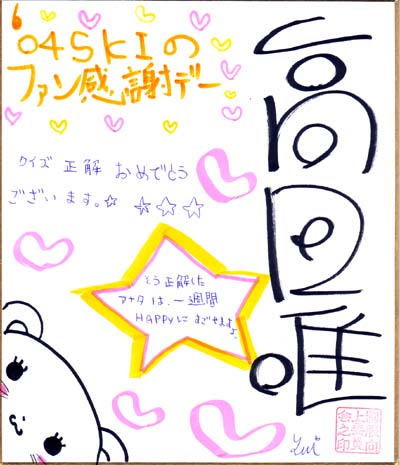 '04SKIの
ファン感謝デー
クイズ 正解 おめでとう
ございます。☆ ☆☆☆
そう正解した
アナタは、一週間
HAPPYに すごせますよ。